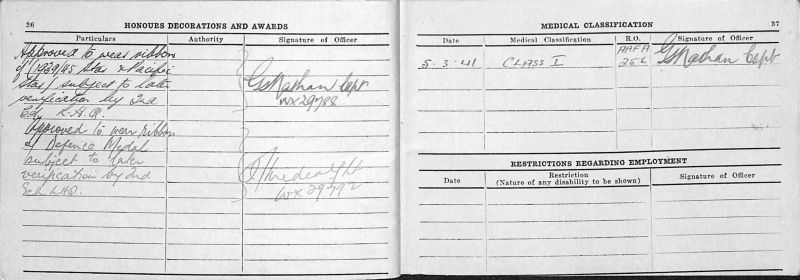 36
HONOURS DECORATIONS AND AWARDS
Particulars Authority Signature of Officer
Approved to wear ribbon
of (1939/45 Star & Pacific
Star) subject to later
verification by 2nd
L.H.Q.
GNathan Capt
WX29788
Approved to wear ribbon
of Defence Medal
subject to later
verification by 2nd
LHQ.
WX29792
MEDICAL CLASSIFICATION
37
Date Medical Classification R.O. Signature of Officer
5-3-41 CLASS I AAFA 256 GNathan Capt
RESTRICTIONS REGARDING EMPLOYMENT
Date Restriction Signature of Officer
(Nature of any disability to be shown)